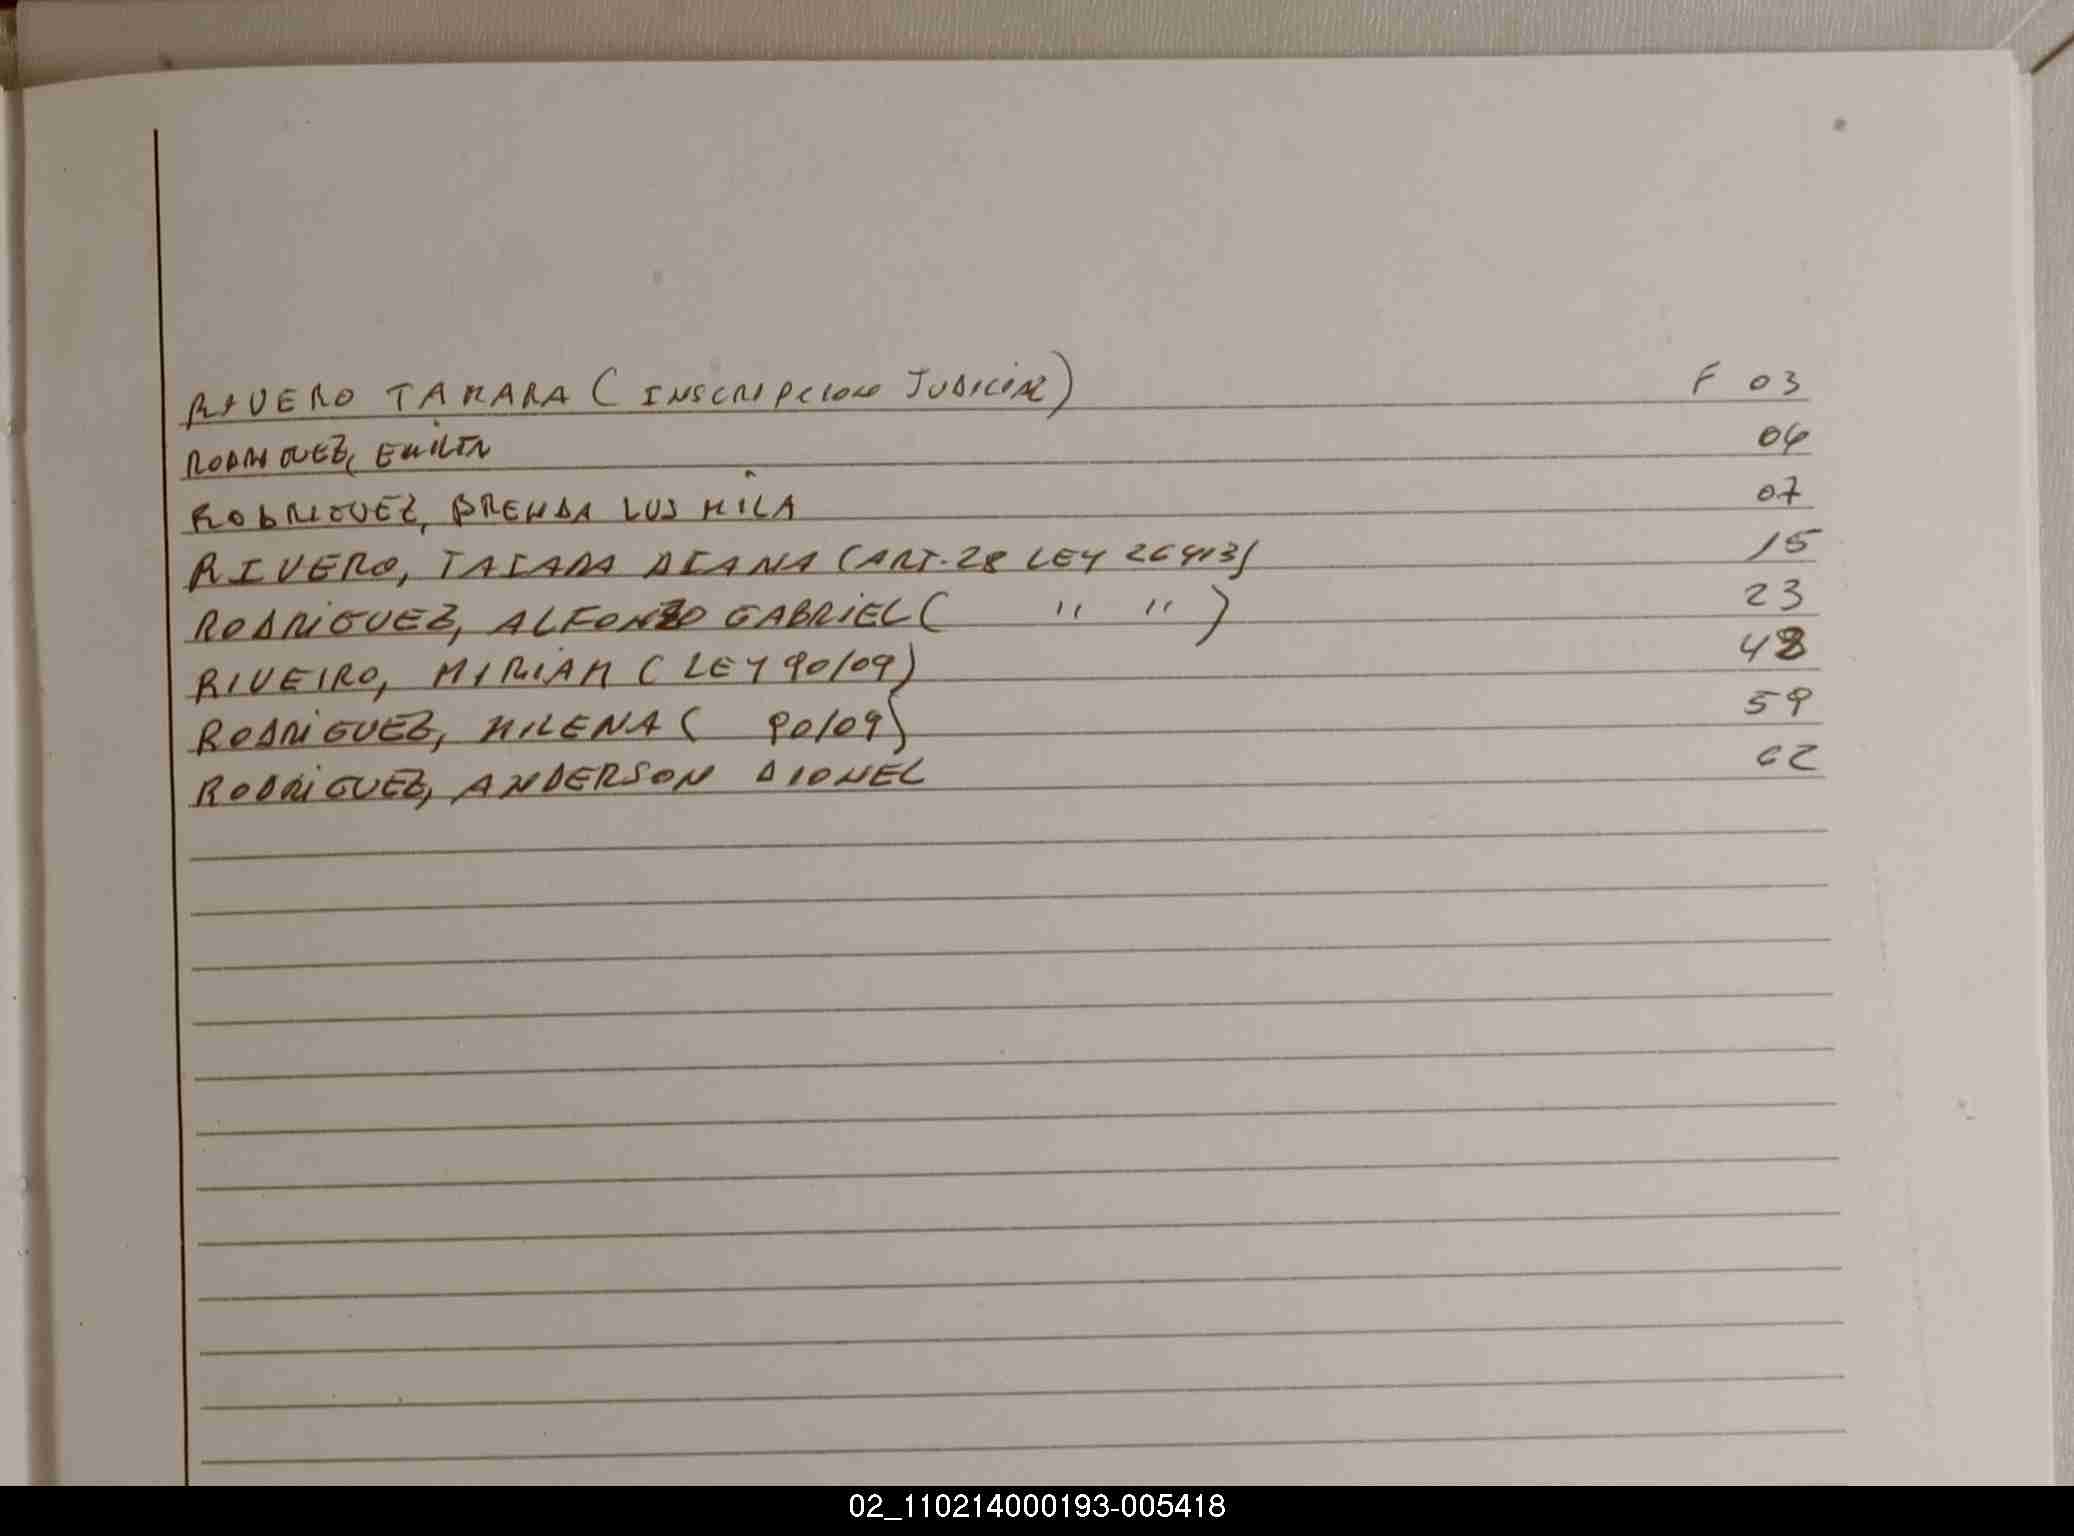 RIVERO TAMARA (INSCRIPCION JUDICIAL) F 03
RODRIGUEZ, EMILIA 06
RODRIGUEZ, BRENDA LUSMILA 07
RIVERO, TAIARA DIANA (ART. 28 LEY 26413) 15
RODRIGUEZ, ALFONZO GABRIEL ( " " ) 23
RIVEIRO, MIRIAM (LEY 90/09) 48
RODRIGUEZ, MILENA ( 90/09) 59
RODRIGUEZ, ANDERSON DIONEL 62
02_110214000193-005418